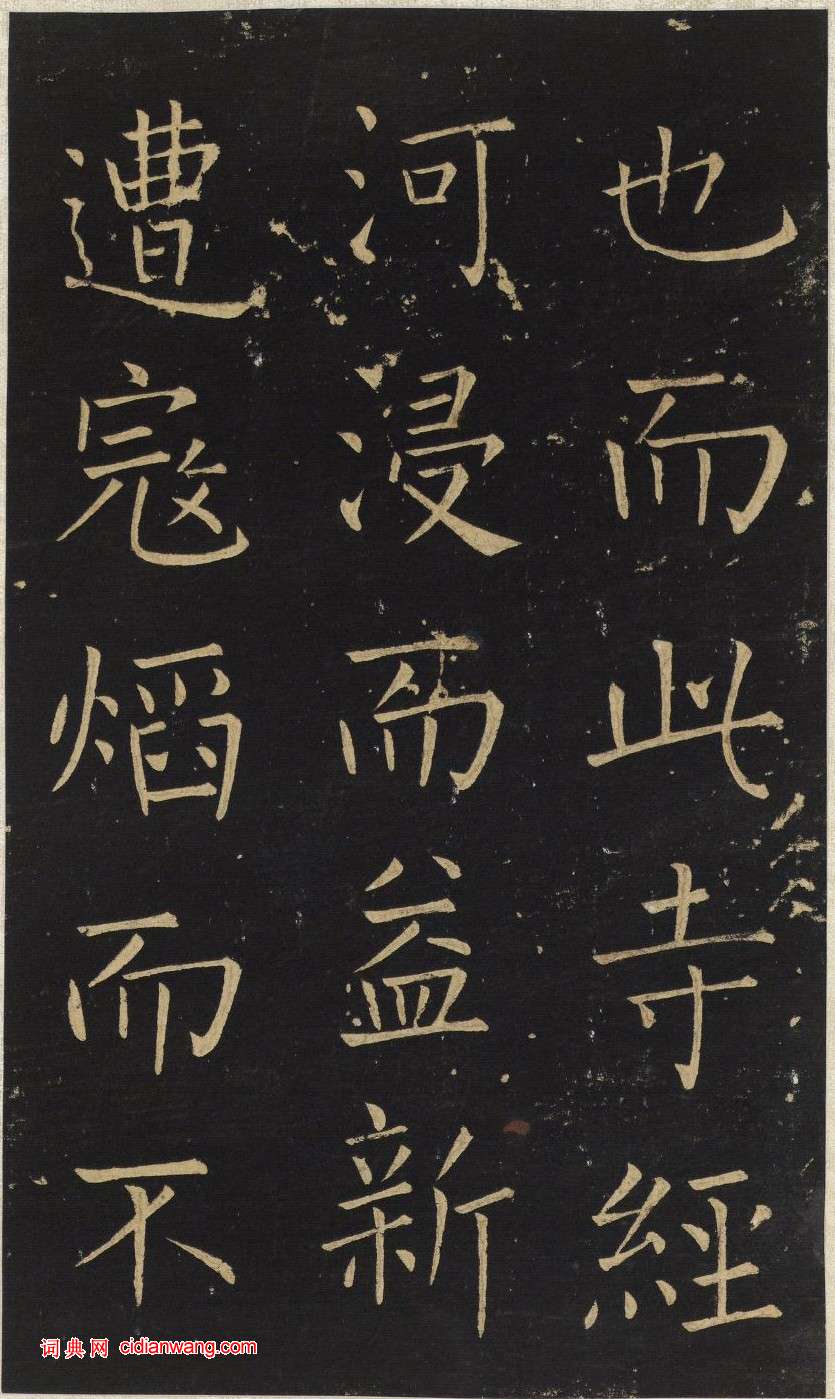 也而此寺經
河浸而益新
遭寇熖而不
词典网 cidianwang.com